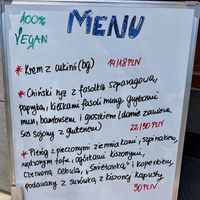 100%
VEGAN
MENU
* Krem z cukini (bg) 14/18 PLN
* Chiński ryż z fasolką szparagową,
papryką, kiełkami fasoli mung, grzybami
mun, bambusem i groszkiem (danie zawiera
sos sojowy z glutenem) 22/30 PLN
* Pieróg z pieczonymi ziemniakami, szpinakiem,
wędzonym tofu, ogórkami kiszonymi,
czerwoną cebulą, "śmietanką" i koperkiem,
podawany z surówką z kiszonej kapusty
30 PLN